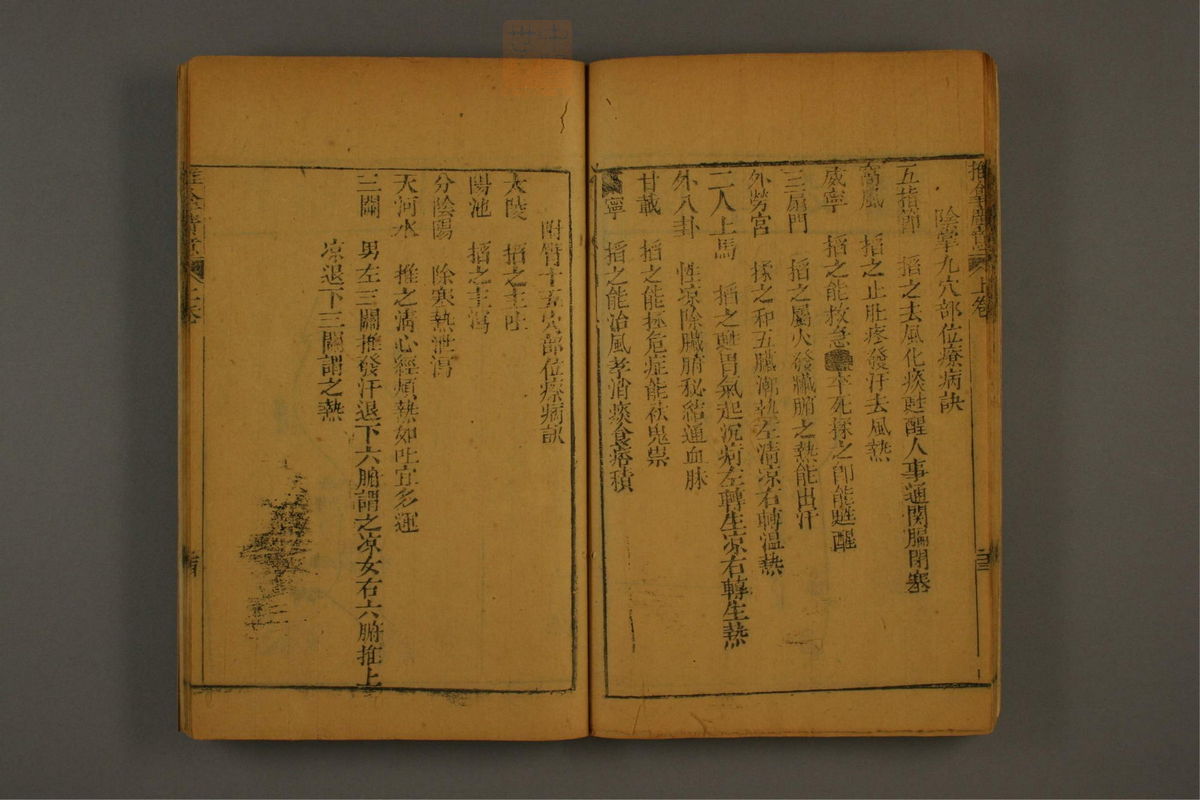 上卷
陰掌九穴部位療病訣
五指節 搯之去風化痰甦醒人事通関膈閉塞
風 搯之止肚疼發汗去風熱
威寧 搯之能救急卒死揉之即能甦醒
三扇門 搯之屬火發臟腑之熱能出汗
外勞宮 揉之和五臟潮熱左清凉右轉温熱
二人上馬 搯之甦胃氣起沉疴左轉生凉右轉生熱
外八卦 性凉除臟腑秘結通血脉
甘載 搯之能拯危症能袪鬼祟
寧 搯之能治風孝消痰食痞積
附臂十五穴部位療病訣
大陵 搯之主吐
陽池 搯之主瀉
分陰陽 除寒熱泄瀉
天河水 推之清心經煩熱如吐宜多運
三關 男左三關推發汗退下六腑謂之凉女右六腑推上
凉退下三關謂之熱